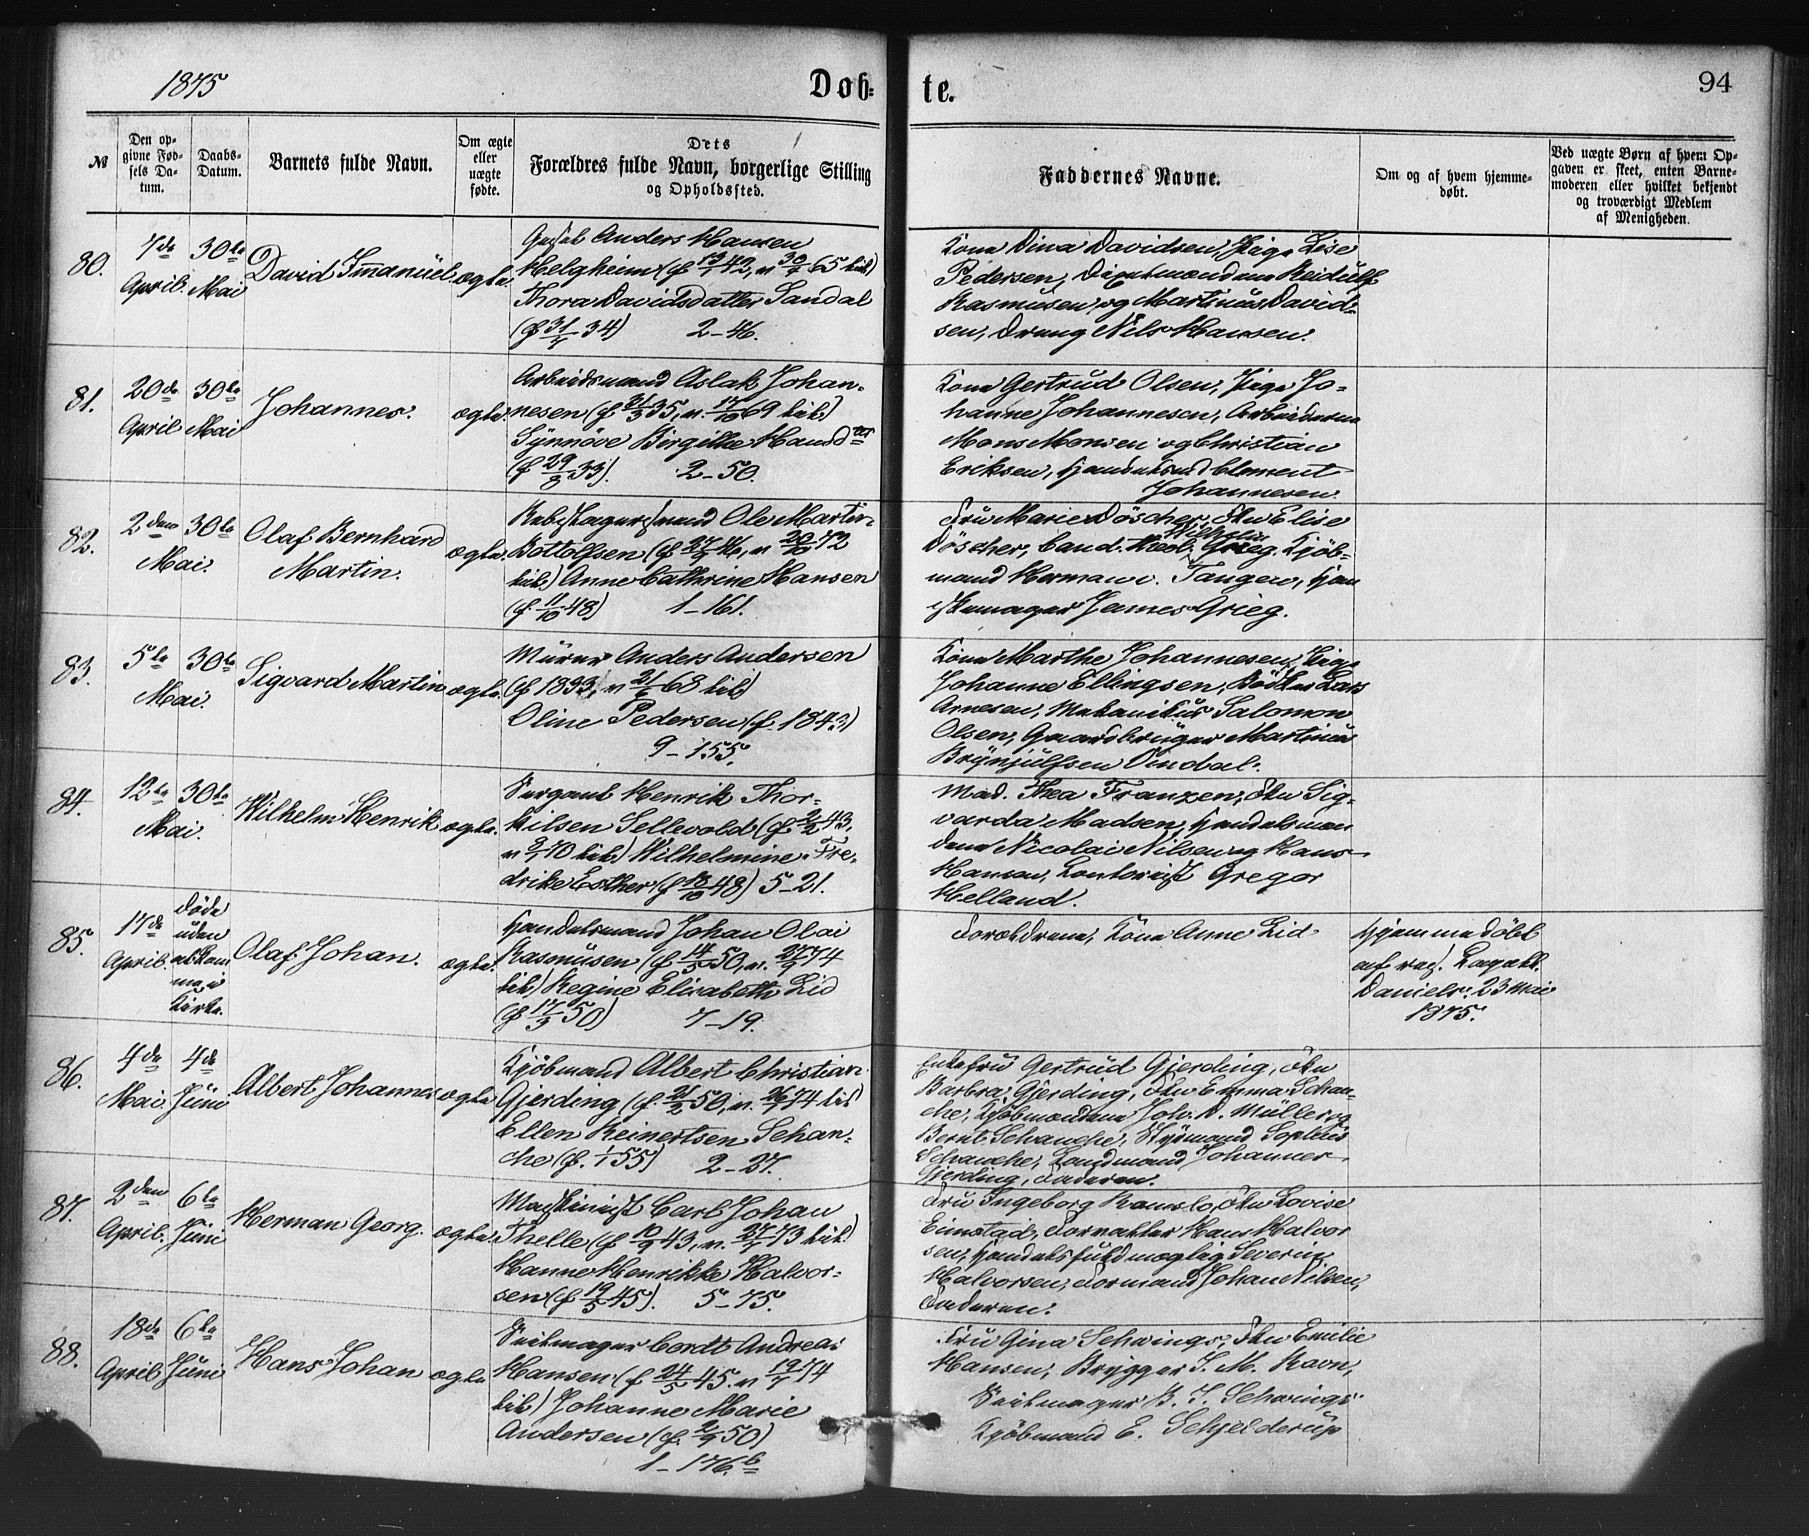 1875
Døb-
te.
94
№
Den op-
givne Fød-
sels Da-
tum.
Daabs-
Datum.
Barnets fulde Navn.
Om ægte
eller
uægte
fødte.
Dets
Forældres fulde Navn, borgerlige Stilling
og Opholdssted.
Faddernes Navne.
Om og af hvem hjemme-
døbt.
Ved uægte Børn af hvem Op-
gaven er skeet, enten Barne-
moderen eller hvilket bekjendt
og troværdigt Medlem
af Menigheden.
80.
7de
April.
30te
Mai
David Immanuel
ægte.
Anders Hansen
Helgheim (f 13/1 42, v 30/7 65 bib)
Thora Davidsdatter Sandal
(f 31/7 34) 2-46.
Kone Dina Davidsen, Pige Lise
Pedersen, Reidulf
Rasmusen og Martinus David-
sen, Dreng Nils Hansen.
81.
20de
April
30te
Mai
Johannes.
ægte.
Arbeidsmand Aslak Johan-
nesen (f 21/3 35, v. 17/10 69 bib)
Synnöve Birgithe Hansd
(f 29/8 33). 2-50.
Kone Gertrud Olsen, Pige Jo-
hanne Johannesen, Arbeiderne
Mons Monsen og Christian
Eriksen, Clement
Johannesen.
82.
2den
Mai.
30te
Olaf Bernhard
Martin.
ægte.
Ole Martin
Bottolfsen (f 27/9 46, v 20/10 72
bib) Anne Cathrine Hansen
(f 11/10 48) 1-161.
Fru Marie Döscher, Frk Elise
Döscher, Cand. theol. Wilhelm Grieg, Kjöb-
mand Herman Tangen,
James Grieg.
83.
5te
Mai.
30te
Sigvard Martin
ægte.
Murer Anders Andersen
(f 1833, v 21/6 68 bib)
Oline Pedersen (f. 1843)
9-155.
Kone Marthe Johannesen, Pige
Johanne Ellingsen, Bödker Lars
Arnesen, Mekanikus Salomon
Olsen, Gaardbruger Martinus
Brynjulfsen Vindal.
84.
12te
Mai.
30te
Wilhelm Henrik
ægte.
Sergant Henrik Thor-
kilsen Sellevold (f 2/2 43,
v 3/7 70 bib) Wilhelmine Fre-
drike Esther (f 18/10 48) 5-21.
Mad. Thea Franzen, Frk Sig-
varda Madsen, Handelsmæn
dene Nicolai Nilsen og Hans
Hansen, Kontorist Gregor
Helland.
85.
17de
April.
Döde
uden
at kom
me i
Kirke.
Olaf Johan.
ægte.
Handelsmand Johan Olai
Rasmusen (f 14/5 50, v. 27/9 74
bib) Regine Elisabeth Lid
(f 17/3 50) 7-19.
Forældrene, Kone Anne Lid
Hjemmedöbt
af res. Kapell.
Daniels. 23 Mai
1875.
86.
4de
Mai
4de
Juni
Albert Johannes
ægte
Kjöbmand Albert Christian
Gjerding (f. 21/2 50, v. 26/7 74 bib
Ellen Reinertsen Schan-
che (f. 1/1 55) 2-27.
Enkefru Gertrud Gjerding, Frk
Barbra Gjerding, Frk Emma Schan-
che, Kjöbmændene Joh. D. Müller og
Bernt Schanche, Sophus
Schanche, Landmand Johannes
Gjerding, Faderen.
87.
2den
April.
6te
Juni
Herman Georg.
ægte.
Maskinist Carl Johan
Thelle (f 10/9 43, v. 27/7 73 bib)
Hanne Henrikke Halvor-
sen (f 19/5 45). 5-75.
Fru Ingeborg Ramslo, Frk Lovise
Eimstad, Forvalter Hans Halvor
sen, Handelsfuldmægtig Severin
Halvorsen, Formand Johan Nilsen,
Faderen.
88.
18de
April
6te
Juni
Hans Johan
ægte
Seilmager Cordt Andreas
Hansen (f 24/5 45. v 19/7 74
bib) Johanne Marie
Andersen (f. 2/9 50)
1-176.b
Fru Gina Schwings, Frk Emilie
Hansen, Brygger J. M. Ravn,
Seilmager B. J. Schwings
Kjöbmand E. Schjelderup